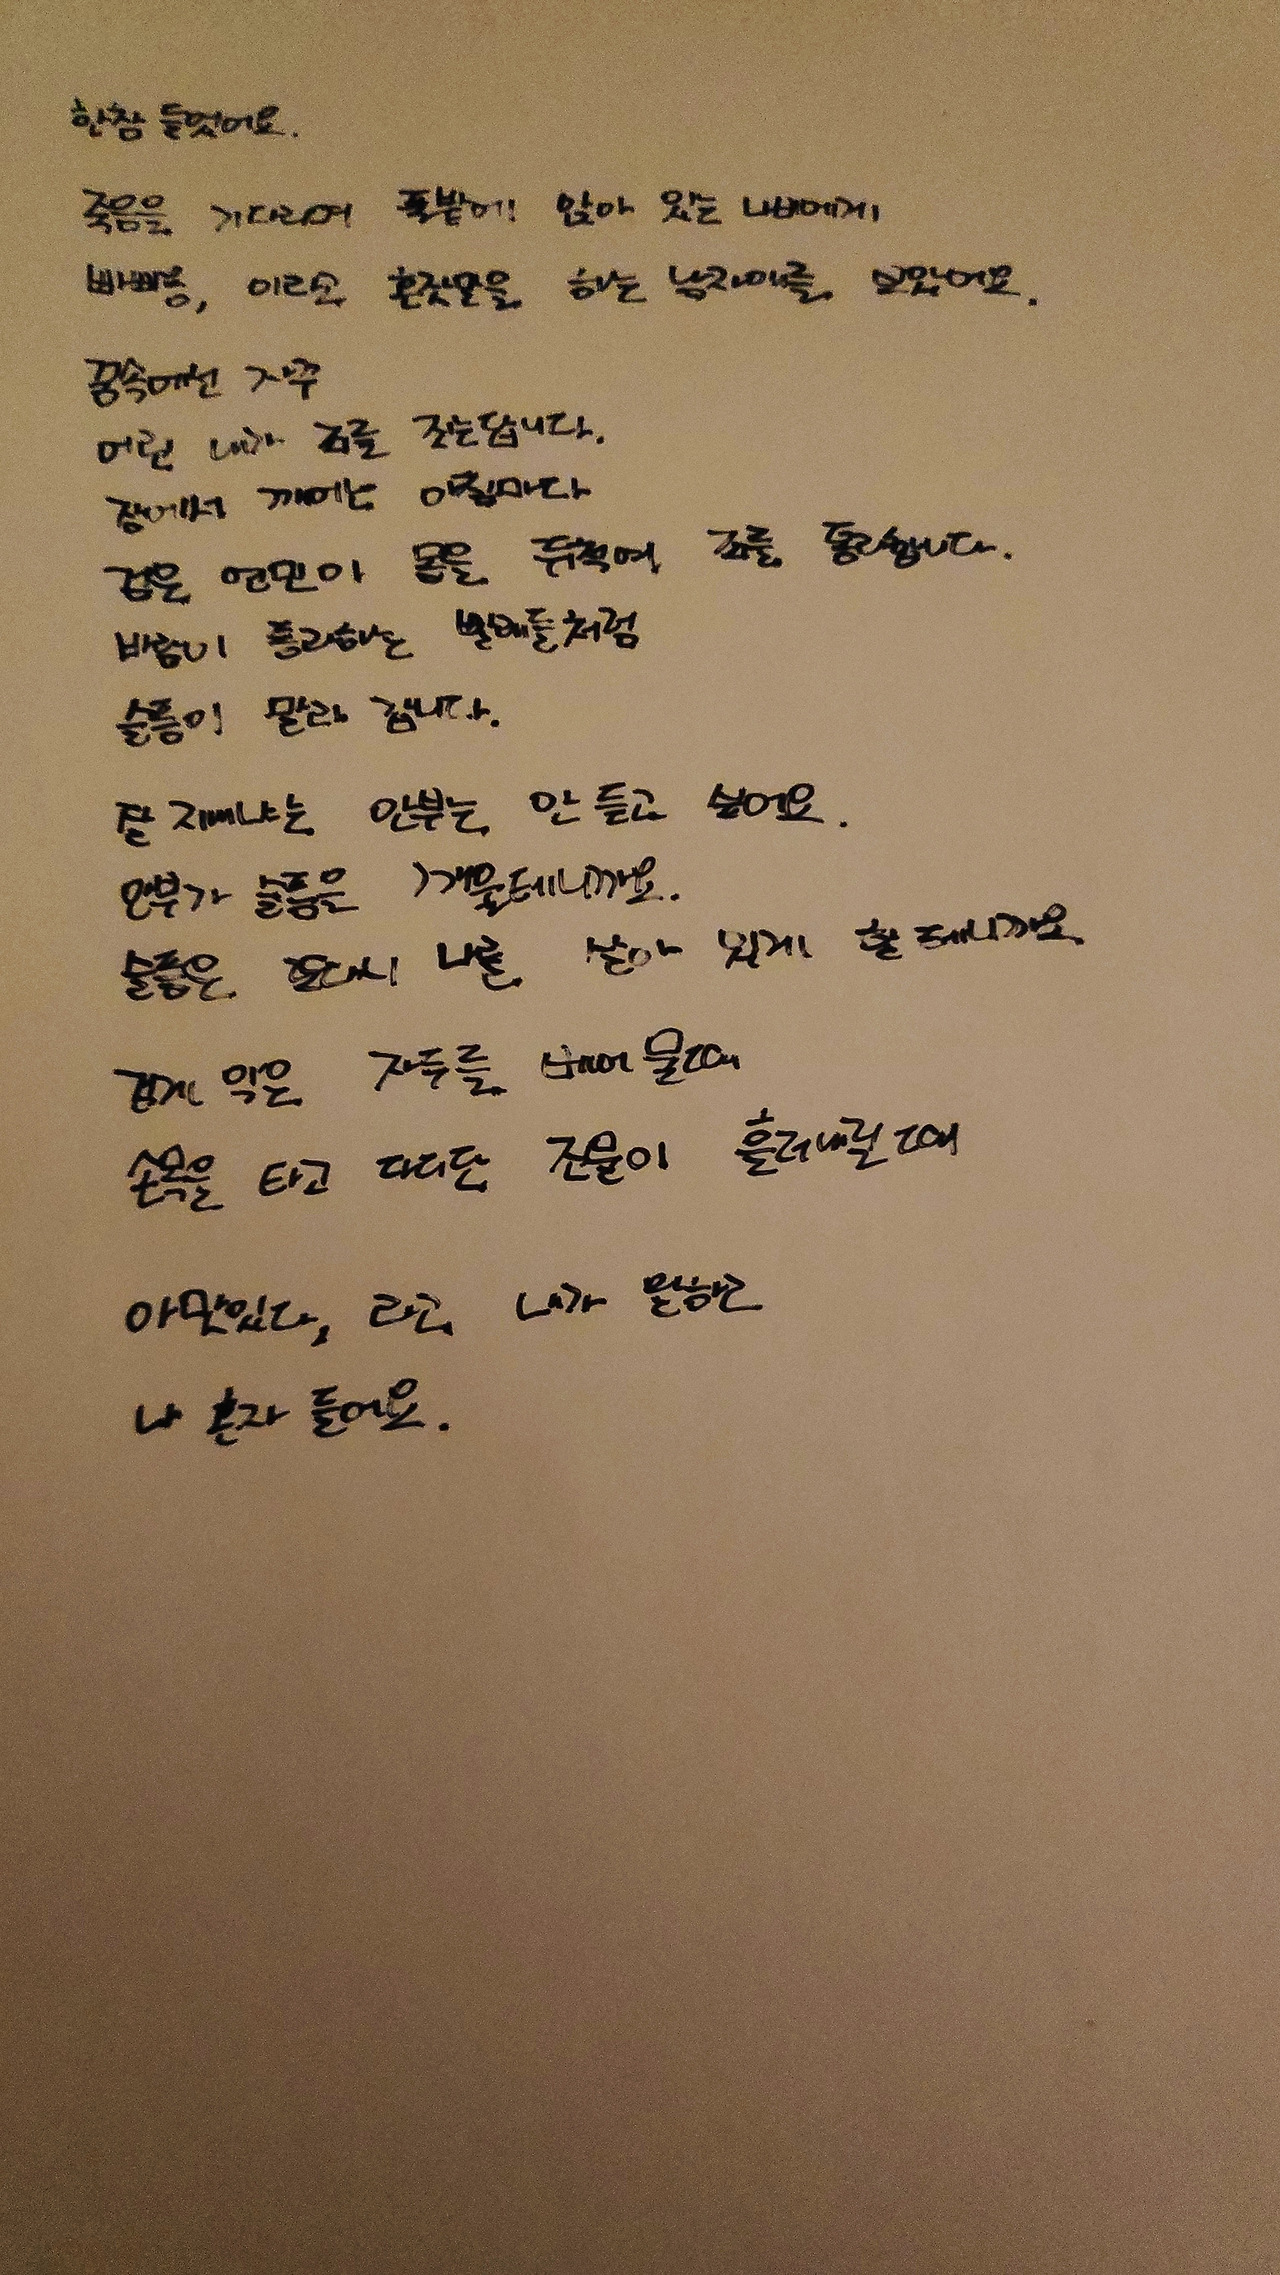 한참 들었어요.
죽음을 기다리며 풀밭에 앉아 있는 나비에게
빠삐용, 이라고 혼잣말을 하는 남자애를 보았어요.
꿈속에선 자꾸
어린 내가 죄를 짓는답니다.
잠에서 깨어난 아침마다
검은 연민이 몸을 뒤척여 죄를 통과합니다.
바람이 통과하는 빨래들처럼
슬픔이 말라 갑니다.
잘 지내냐는 안부는 안 듣고 싶어요.
안부가 슬픔을 깨울테니까요.
슬픔은 또다시 나를 살아 있게 할테니까요
검게 익은 자두를 베어 물때
손목을 타고 다디단 진물이 흘러내릴때
아 맛있다, 라고 내가 말하고
나 혼자 들어요.